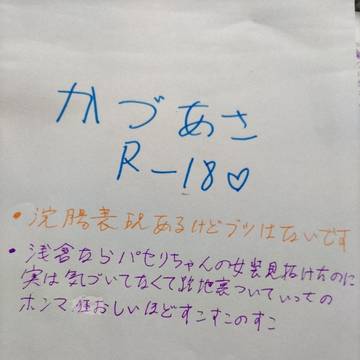 かづあさ
R-18♡
・浣腸表現あるけどブツはないです
・浅倉ならパセリちゃんの女装見抜けたのに
実は気づいてなくて路地裏ついていっての
ホンマ狂おしいほどすこすこのすこ